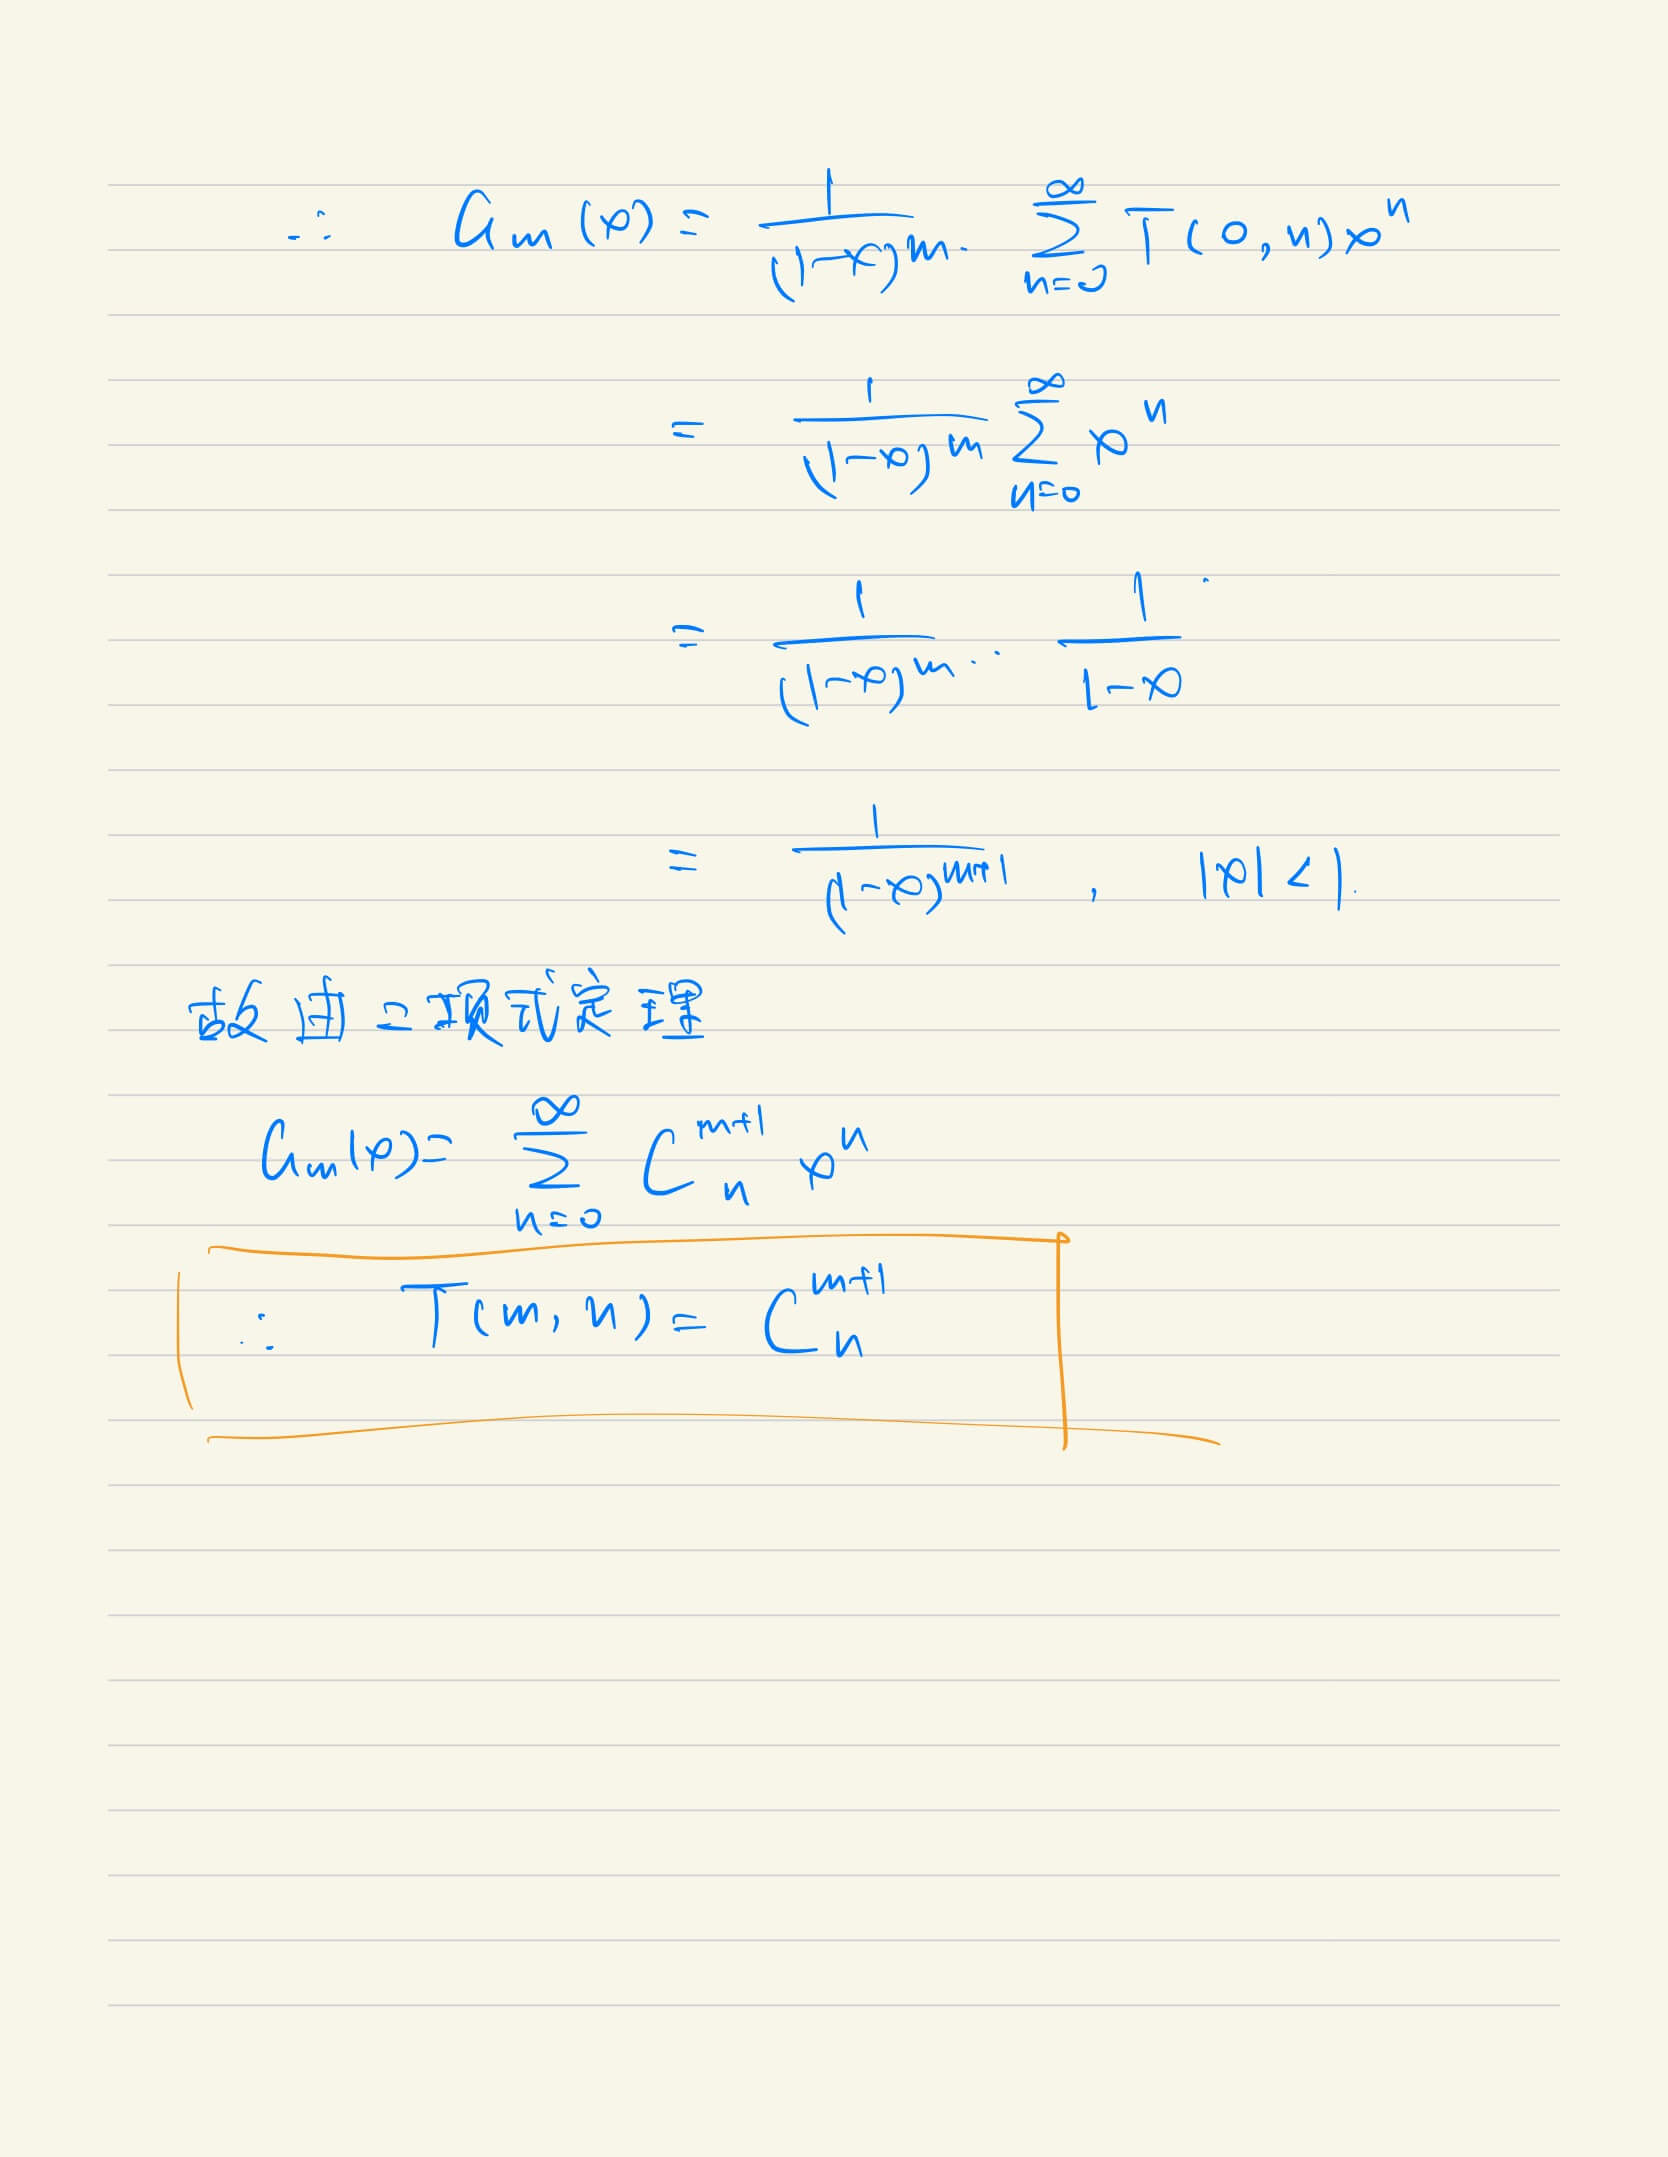 ∴ Gₘ(x) = 1/(1-x)^m · ∑_{n=0}^{∞} T(0,n)x^n
= 1/(1-x)^m ∑_{n=0}^{∞} x^n
= 1/(1-x)^m · 1/(1-x)
= 1/(1-x)^{m+1} , |x| < 1.
故由二項式定理
Gₘ(x) = ∑_{n=0}^{∞} C_n^{m+1} x^n
∴ T(m,n) = C_n^{m+1}